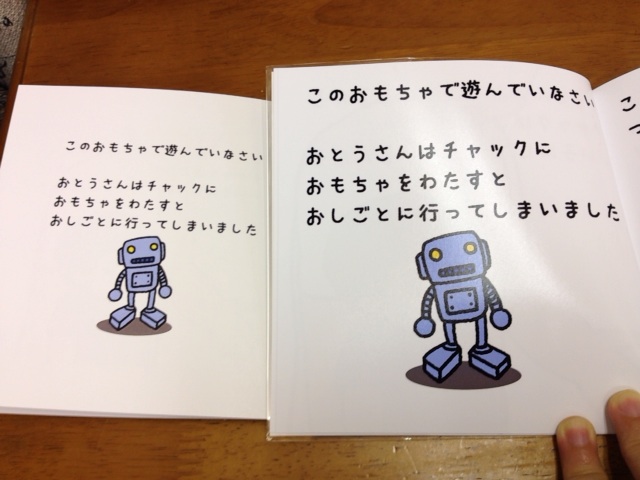 このおもちゃで遊んでいなさい
おとうさんはチャックに
おもちゃをわたすと
おしごとに行ってしまいました
このおもちゃで遊んでいなさい
おとうさんはチャックに
おもちゃをわたすと
おしごとに行ってしまいました
こ